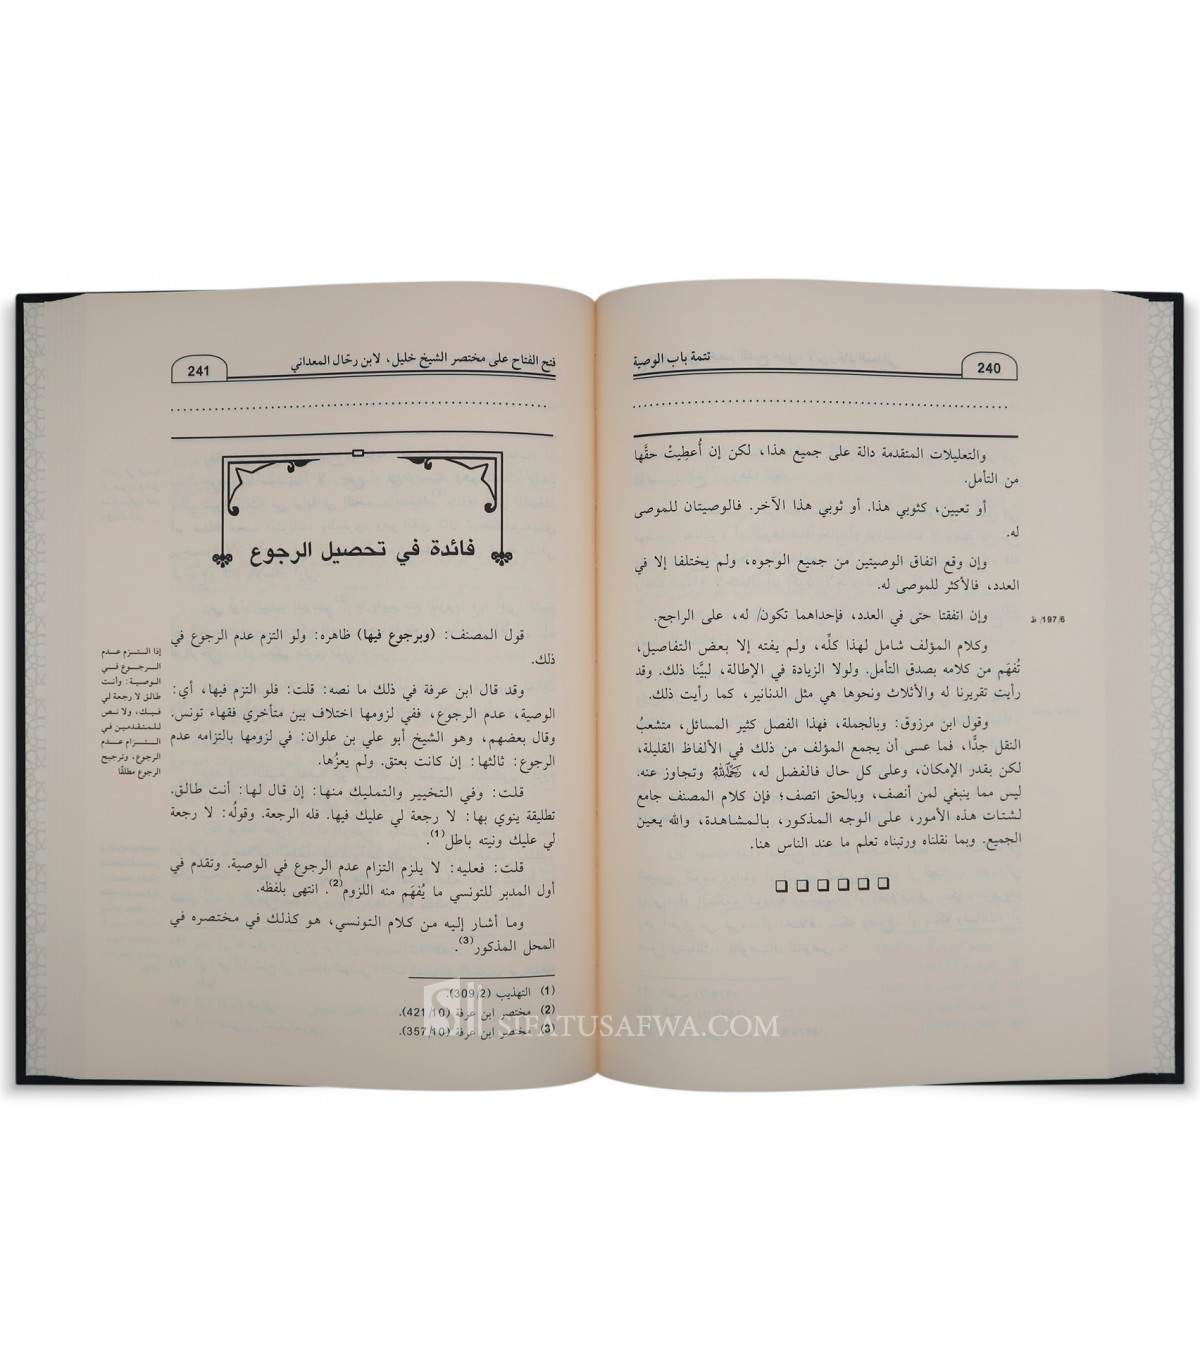 تتمة باب الوصية
240
والتعليلات المتقدمة دالة على جميع هذا، لكن إن أُعطِيتْ حقَّها
من التأمل.
أو تعيين، كثوبي هذا. أو ثوبي هذا الآخر. فالوصيتان للموصى
له.
وإن وقع اتفاق الوصيتين من جميع الوجوه، ولم يختلفا إلا في
العدد، فالأكثر للموصى له.
وإن اتفقتا حتى في العدد، فإحداهما تكون/ له، على الراجح.
6/197/ ظ
وكلام المؤلف شامل لهذا كلِّه، ولم يفته إلا بعض التفاصيل،
تُفهَم من كلامه بصدق التأمل. ولولا الزيادة في الإطالة، لبيَّنا ذلك. وقد
رأيت تقريرنا له والأثلاث ونحوها هي مثل الدنانير، كما رأيت ذلك.
وقول ابن مرزوق: وبالجملة، فهذا الفصل كثير المسائل، متشعبُ
النقل جدًّا، فما عسى أن يجمع المؤلف من ذلك في الألفاظ القليلة،
لكن بقدر الإمكان، وعلى كل حال فالفضل له، رَحِمَهُ اللَّهُ وتجاوز عنه.
ليس مما ينبغي لمن أنصف، وبالحق اتصف؛ فإن كلام المصنف جامع
لشتات هذه الأمور، على الوجه المذكور، بالمشاهدة، والله يعين
الجميع. وبما نقلناه ورتبناه تعلم ما عند الناس هنا.
فتح الفتاح على مختصر الشيخ خليل، لابن رحّال المعداني
241
فائدة في تحصيل الرجوع
قول المصنف: (وبرجوع فيها) ظاهره: ولو التزم عدم الرجوع في
ذلك.
وقد قال ابن عرفة في ذلك ما نصه: قلت: فلو التزم فيها، أي:
الوصية، عدم الرجوع، ففي لزومها اختلاف بين متأخري فقهاء تونس.
وقال بعضهم، وهو الشيخ أبو علي بن علوان: في لزومها بالتزامه عدم
الرجوع: ثالثها: إن كانت بعتق. ولم يعزُها.
إذا التزم عدم
الرجوع في
الوصية: وأنت
طالق لا رجعة لي
فيك، ولا نص
للمتقدمين في
التزام عدم
الرجوع، وترجيح
الرجوع مطلقًا
قلت: وفي التخيير والتمليك منها: إن قال لها: أنت طالق.
تطليقة ينوي بها: لا رجعة لي عليك فيها. فله الرجعة. وقولُه: لا رجعة
لي عليك ونيته باطل(1).
قلت: فعليه: لا يلزم التزام عدم الرجوع في الوصية. وتقدم في
أول المدبر للتونسي ما يُفهَم منه اللزوم(2). انتهى بلفظه.
وما أشار إليه من كلام التونسي، هو كذلك في مختصره في
المحل المذكور(3).
(1) التهذيب (309/2).
(2) مختصر ابن عرفة (421/10).
(3) مختصر ابن عرفة (357/10).
SIFATUSAFWA.COM